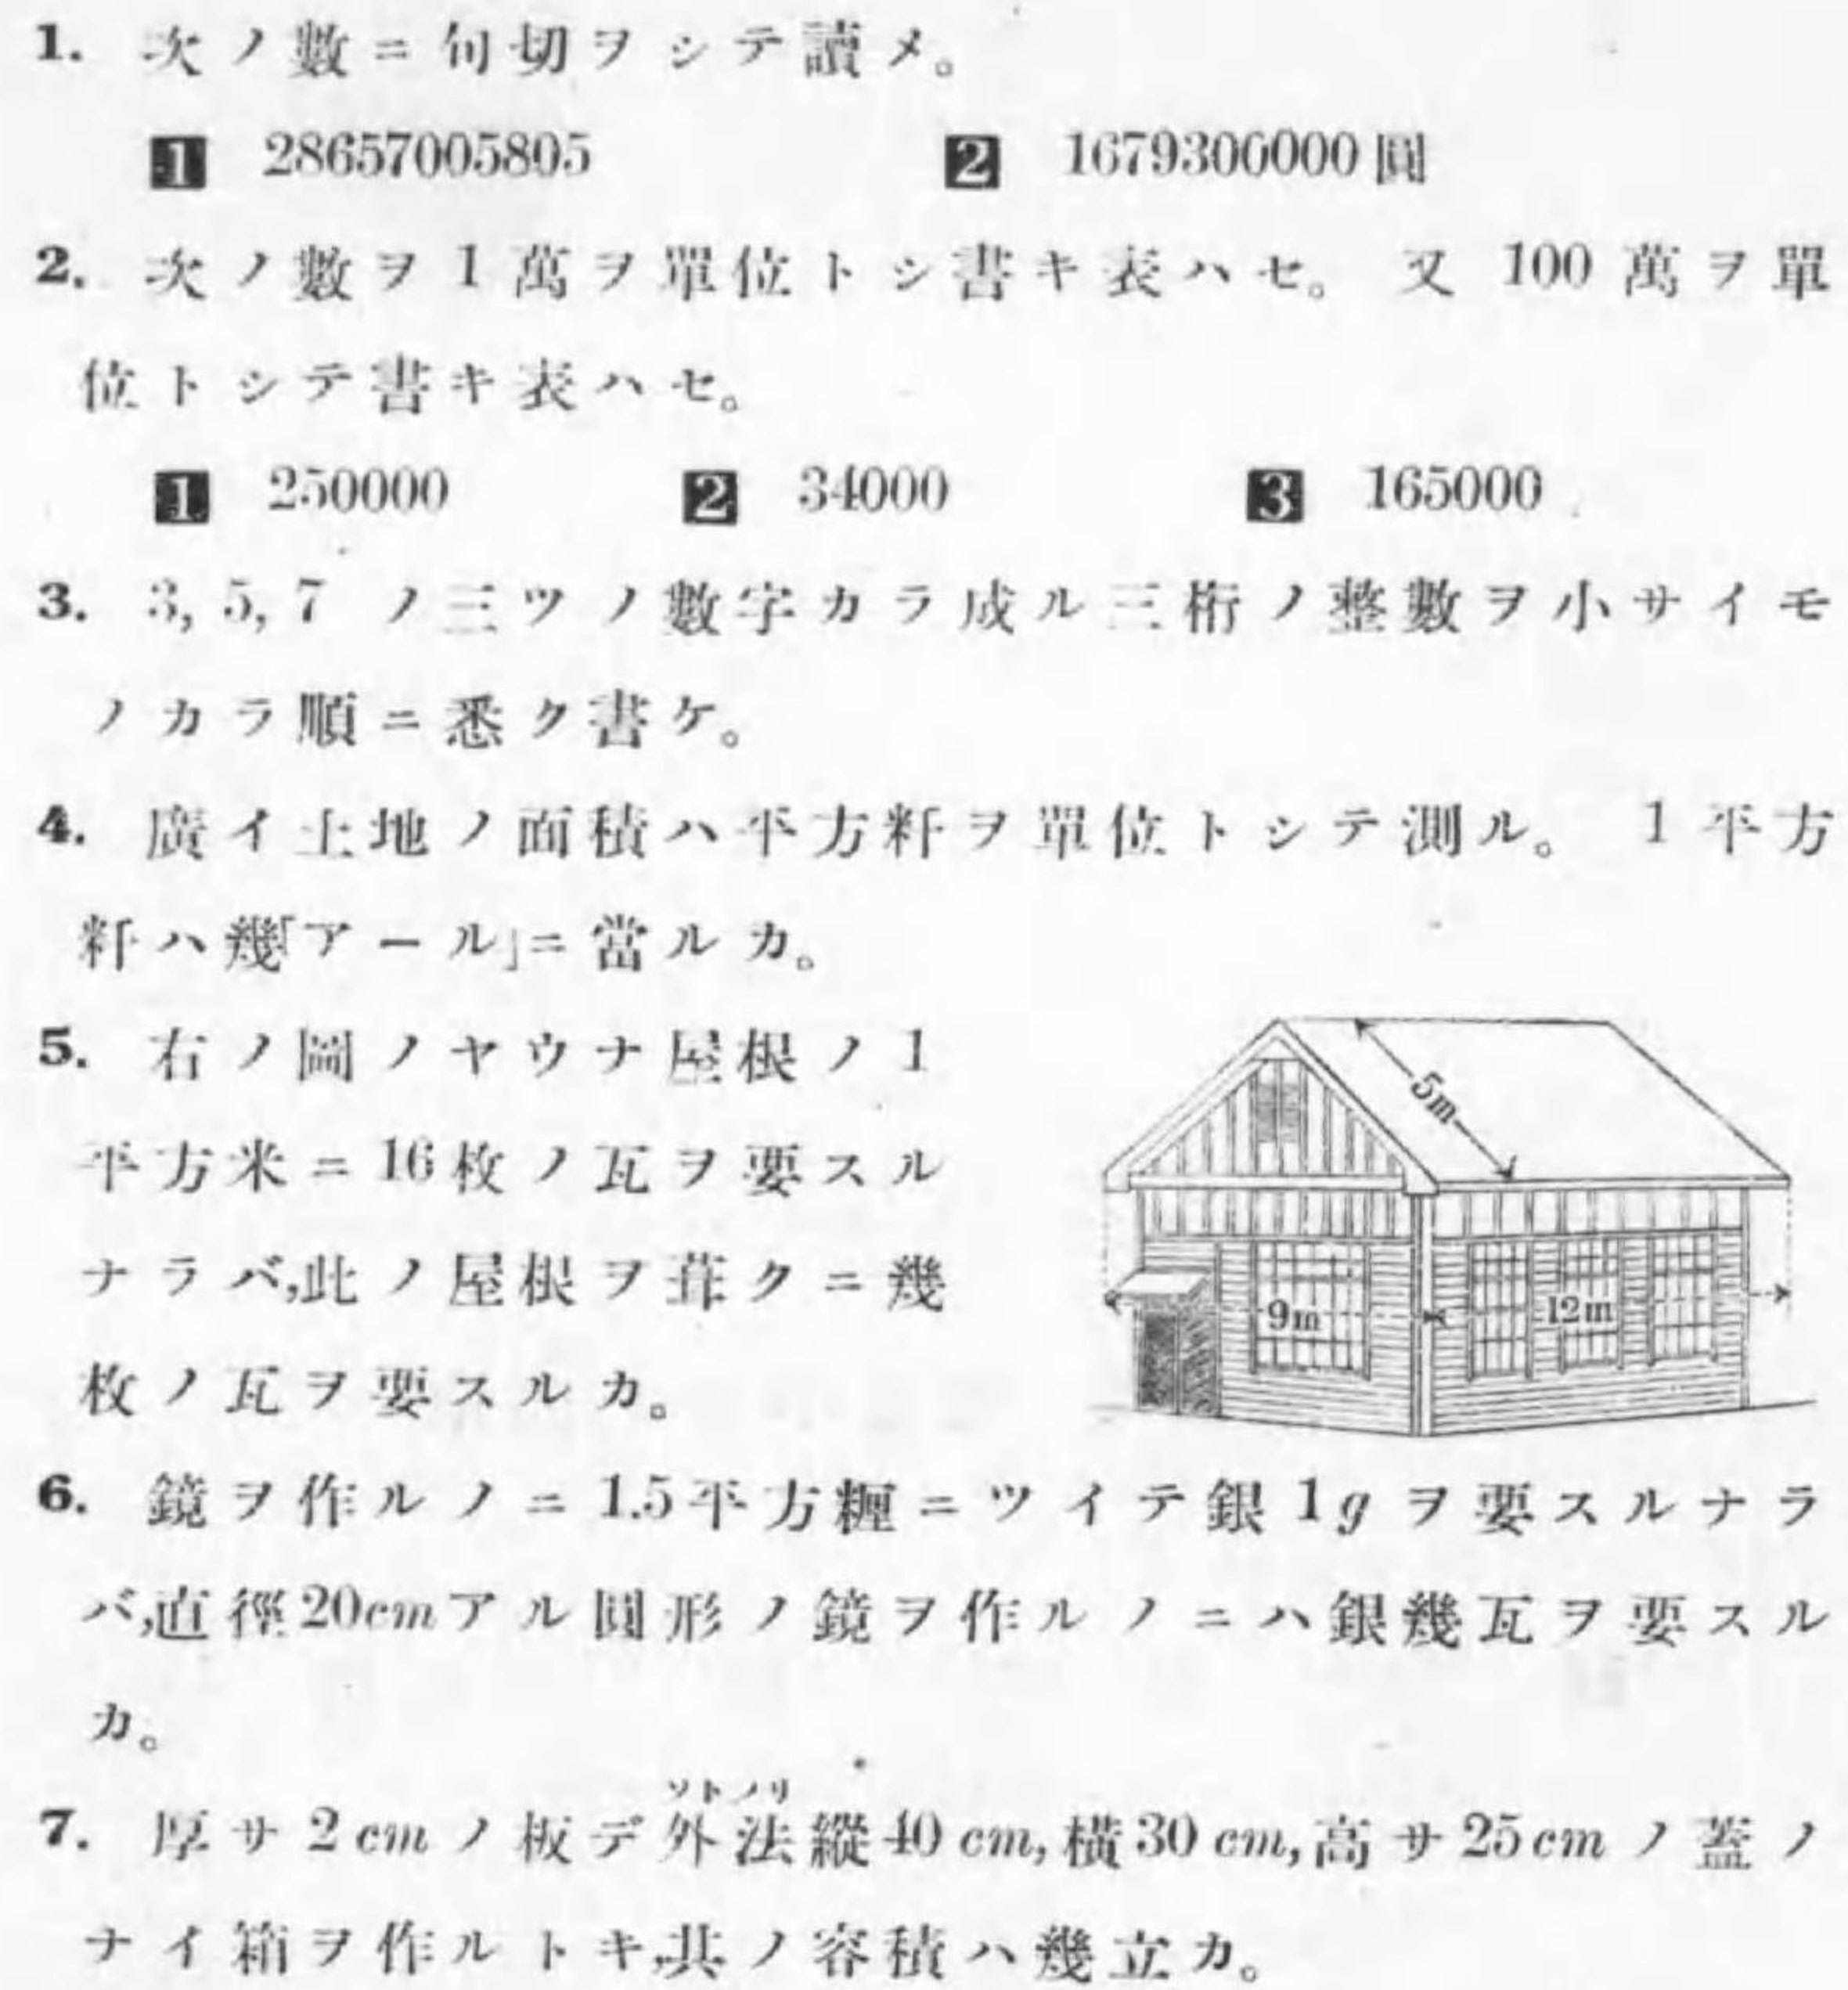 1. 次ノ數ニ句切ヲシテ讀メ。
1 28657005805 2 1679300000圓
2. 次ノ數ヲ1萬ヲ單位トシ書キ表ハセ。又100萬ヲ單
位トシテ書キ表ハセ。
1 250000 2 34000 3 165000
3. 3, 5, 7 ノ三ツノ數字カラ成ル三桁ノ整數ヲ小サイモ
ノカラ順ニ悉ク書ケ。
4. 廣イ土地ノ面積ハ平方粁ヲ單位トシテ測ル。1平方
粁ハ幾「アール」ニ當ルカ。
5. 右ノ圖ノヤウナ屋根ノ1
平方米ニ16枚ノ瓦ヲ要スル
ナラバ,此ノ屋根ヲ葺クニ幾
枚ノ瓦ヲ要スルカ。
5m
9m
12m
6. 鏡ヲ作ルノニ1.5平方糎ニツイテ銀1gヲ要スルナラ
バ,直徑20cmアル圓形ノ鏡ヲ作ルノニハ銀幾瓦ヲ要スル
カ。
ソトノリ
7. 厚サ2cmノ板デ外法縱40cm,横30cm,高サ25cmノ蓋ノ
ナイ箱ヲ作ルトキ,其ノ容積ハ幾立カ。